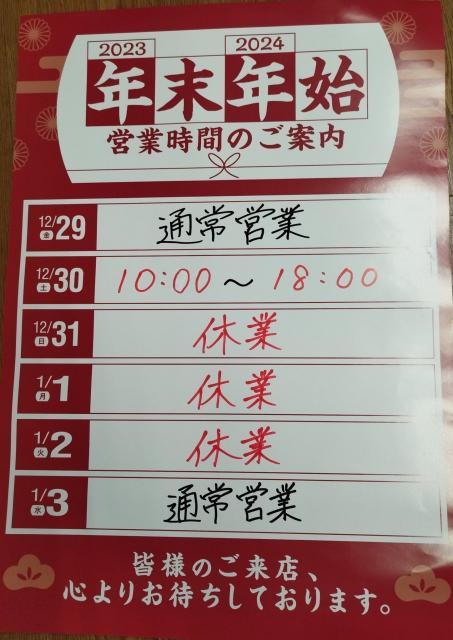 2023 2024
年末年始
営業時間のご案内
12/29 金 通常営業
12/30 土 10:00～18:00
12/31 日 休業
1/1 月 休業
1/2 火 休業
1/3 水 通常営業
皆様のご来店、
心よりお待ちしております。